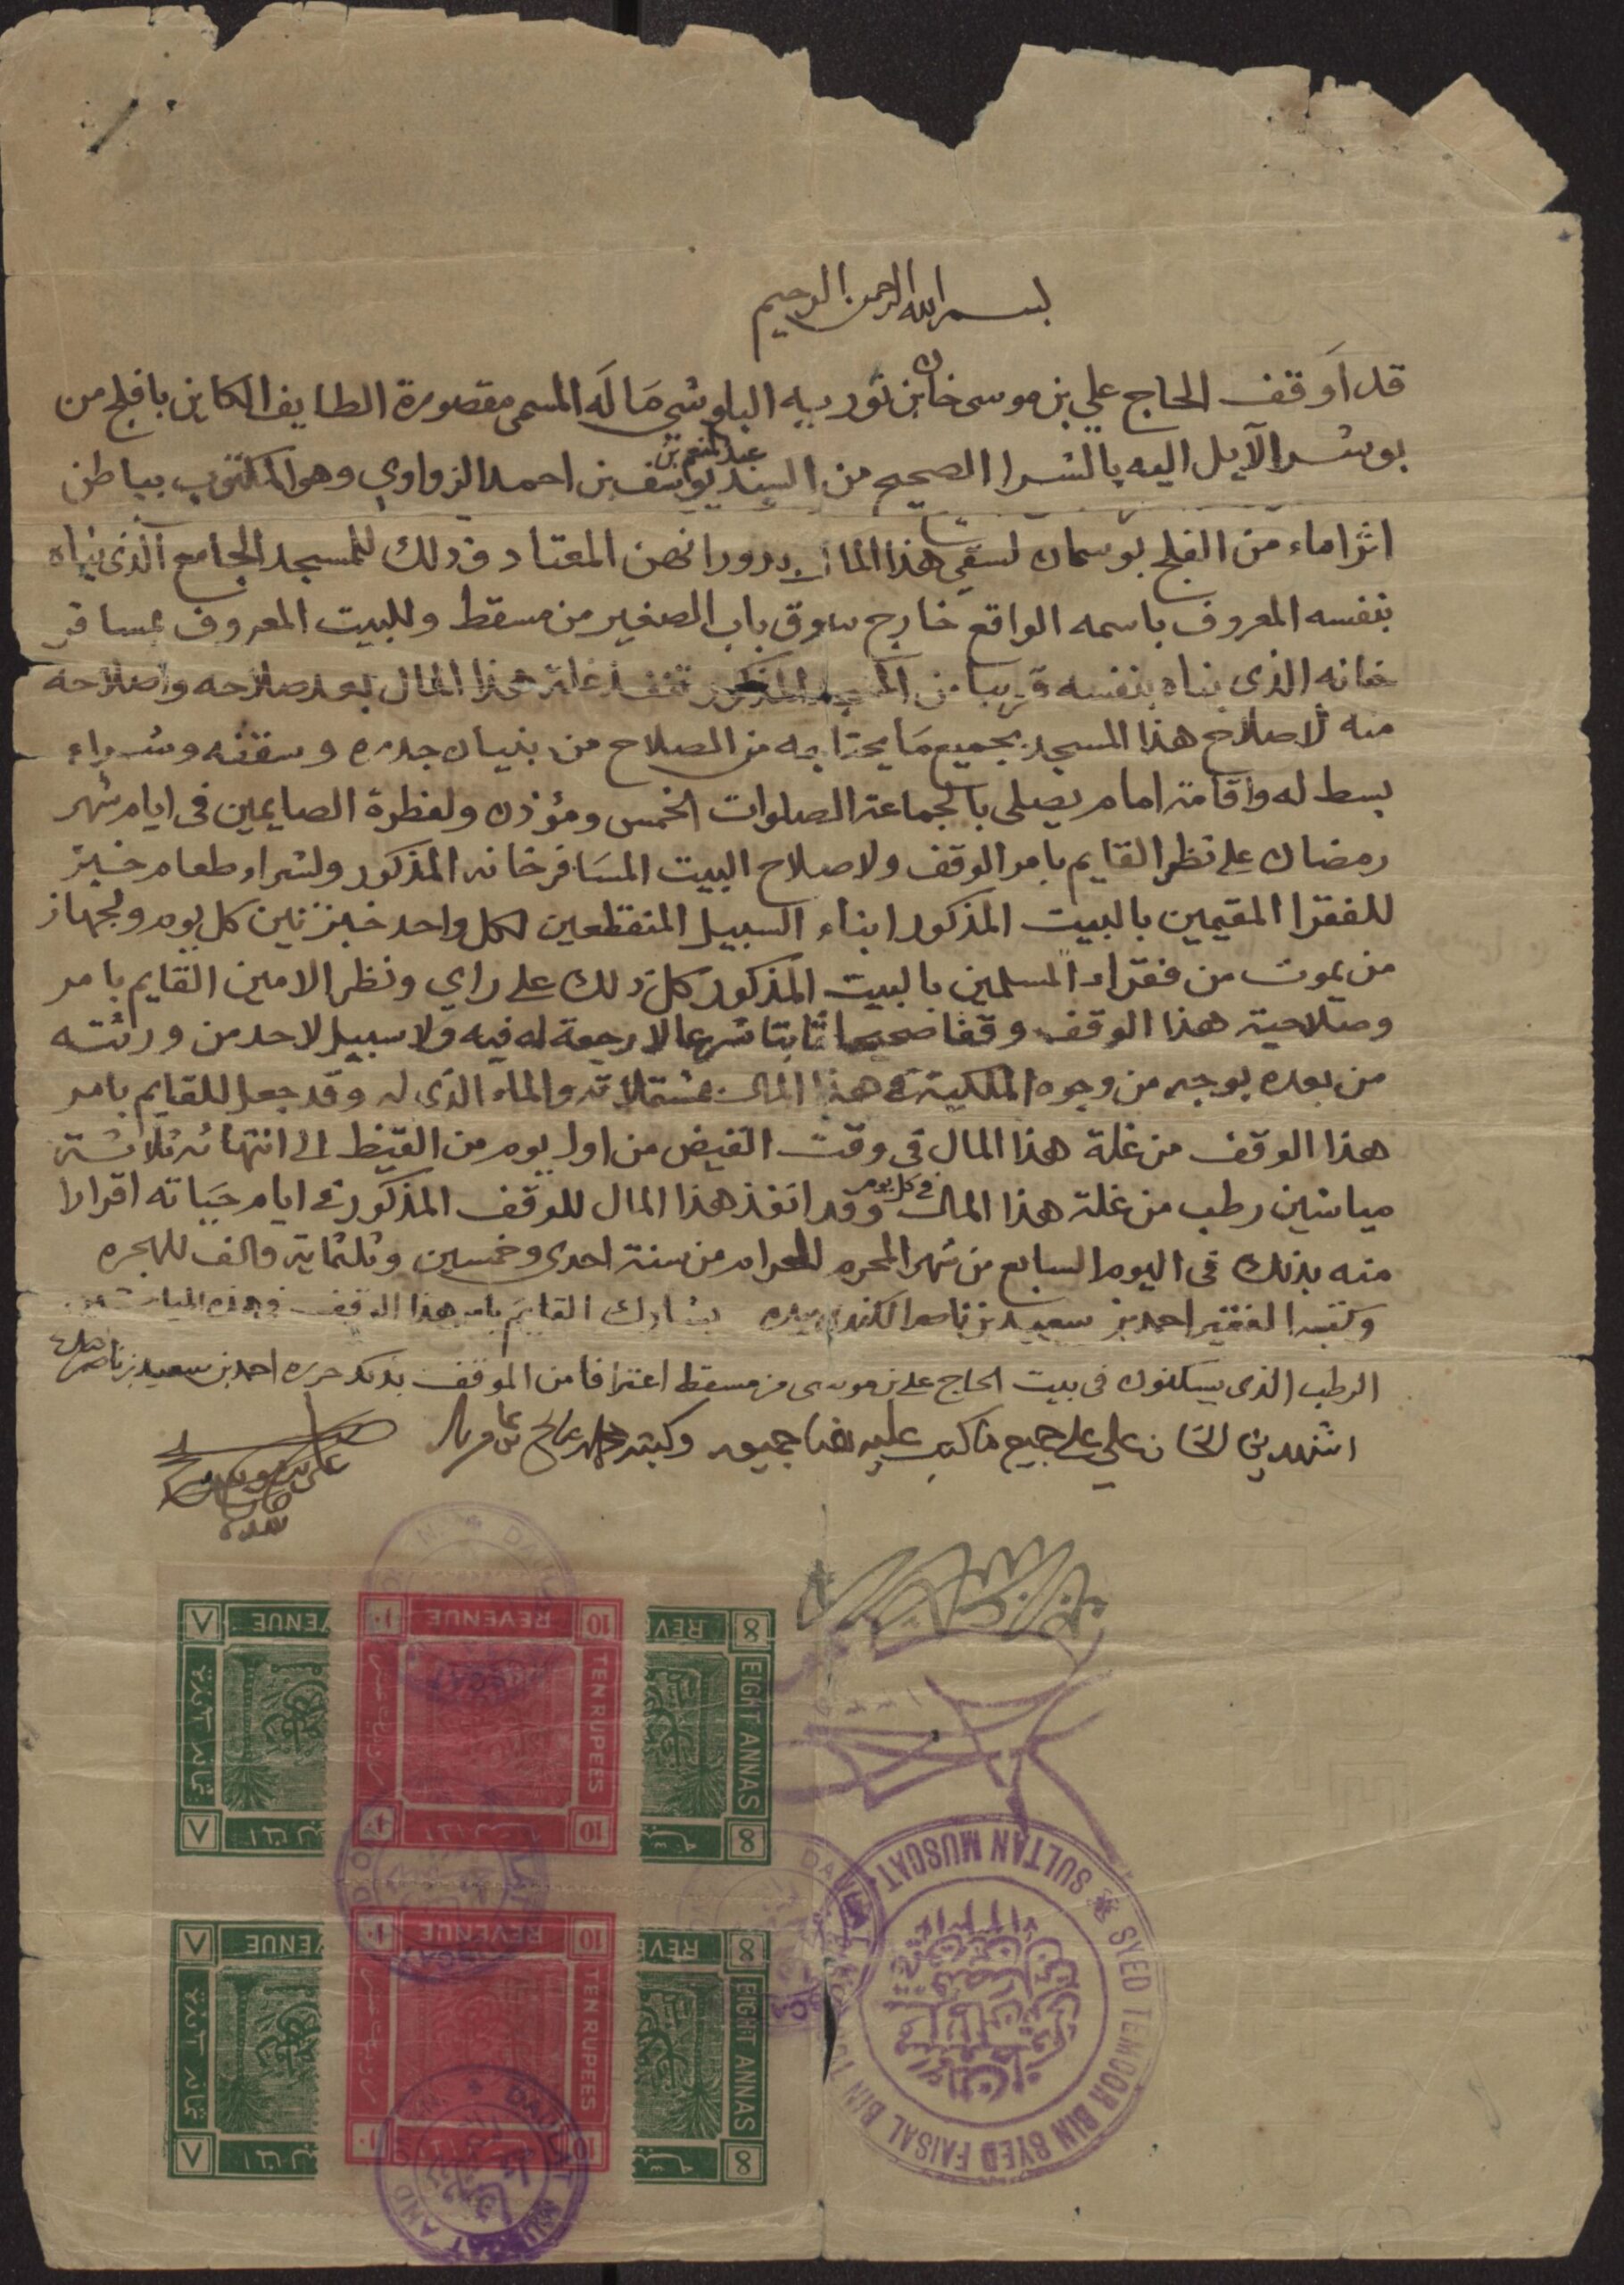 بسم الله الرحمن الرحيم
قد أوقف الحاج علي بن موسى خان بن نوربيه البلوشي ماله المسمى مقصورة الطايف الكاين بافلج من
بوشر الآيل اليه بالشرا الصحيح من السيد عبد المنعم بن يوسف بن احمد الزواوي وهو المكتوب بباطن
اثرا ماء من الفلج بوسمان لسقي هذا المال بدورانهن المعتاد وذلك للمسجد الجامع الذى بناه
بنفسه المعروف باسمه الواقع خارج سوق باب الصغير من مسقط وللبيت المعروف بمسافر
خانه الذى بناه بنفسه قريبا من المسجد المذكور تنفذ غلة هذا المال بعد صلاحه واصلاحه
منه لاصلاح هذا المسجد بجميع ما يحتاجه من الصلاح من بنيان جدره وسقفه وشراء
بسط له واقامة امام يصلى بالجماعة الصلوات الخمس ومؤذن ولفطرة الصايمين فى ايام شهر
رمضان على نظر القايم بامر الوقف ولاصلاح البيت المسافر خانه المذكور ولشراء طعام خبز
للفقرا المقيمين بالبيت المذكور ابناء السبيل المنقطعين لكل واحد خبزتين كل يوم ولجهاز
من يموت من فقراء المسلمين بالبيت المذكور كل ذلك على راي ونظر الامين القايم بامر
وصلاحية هذا الوقف وقفا صحيحا ثابتا شرعيا لا رجعة له فيه ولا سبيل لاحد من ورثته
من بعده بوجه من وجوه الملكية في هذا المال بمشتملاته والماء الذى له وقد جعل للقايم بامر
هذا الوقف من غلة هذا المال فى وقت القيض من اول يوم من القيظ الى انتهائه ثلاثة
مياشين رطب من غلة هذا المال في كل يوم وقد انفذ هذا المال للوقف المذكور في ايام حياته اقرارا
منه بذلك فى اليوم السابع من شهر المحرم الحرام من سنة احدى وخمسين وثلثماية والف للهجره
وكتبه الفقير احمد بن سعيد بن ناصر الكندي بيده يشارك القايم بامر هذا الوقف في هذه المياشين
الرطب الذى يسكنون فى بيت الحاج على بن موسى من مسقط اعترافا من الموقف بذلك حرره احمد بن سعيد بن ناصر بيده
اشهدني الخان علي على جميع ما كتب عليه هنا جميعه وكتبه
علي بن موسى خان
بيده
SYED TEMOOR BIN SYED FAISAL BIN TURKI SULTAN MUSCAT
REVENUE
10
TEN RUPEES
10
١٠
8
EIGHT ANNAS
8
٨
ثمانه آنه
REVENUE
10
TEN RUPEES
10
١٠
8
EIGHT ANNAS
8
٨
ثمانه آنه
DAULAT MUSCAT AND OMAN